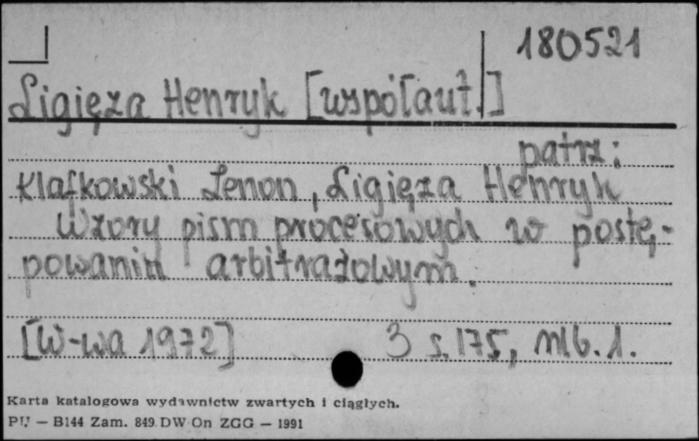 180521
Ligięza Henryk [współaut.]
patrz:
Klafkowski Zenon, Ligięza Henryk
Wzory pism procesowych w postę-
powaniu arbitrażowym.
[W-wa 1972] 3 s. 175, nlb. 1.
Karta katalogowa wydawnictw zwartych i ciągłych.
PU — B144 Zam. 849. DW On ZGG — 1991